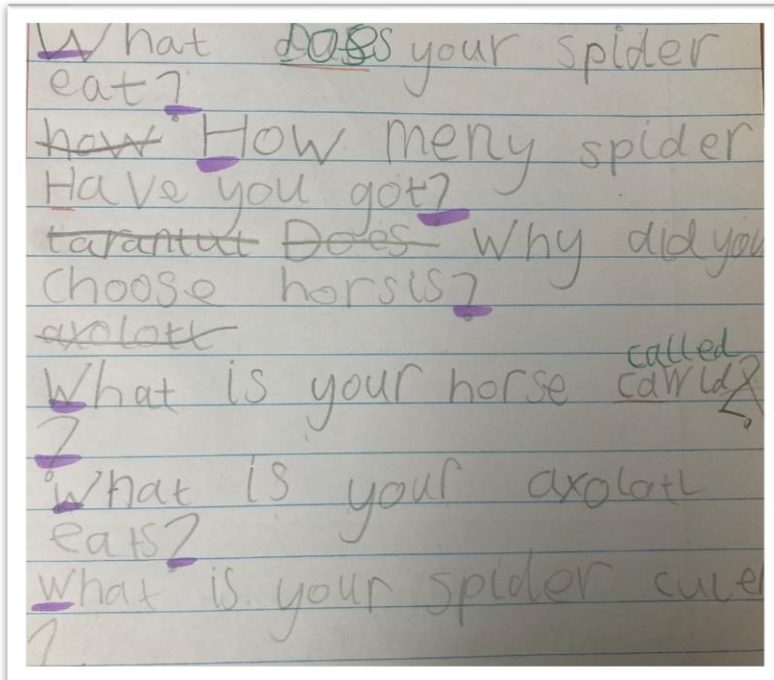 What does your spider
eat?
how How meny spider
Have you got?
tarantut Does Why did you
choose horsis?
axolotl
called
What is your horse cawld
?
What is your axolotl
eats?
What is your spider culer
?